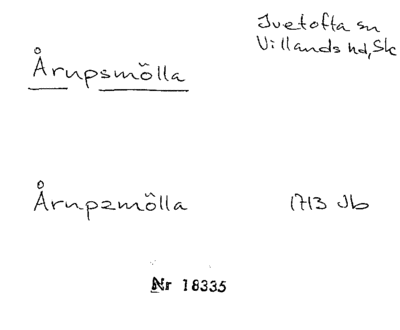 Ivetofta sn
Villands hd, Sk
Årupsmölla
Årupzmölla 1713 Jb
Nr 18335